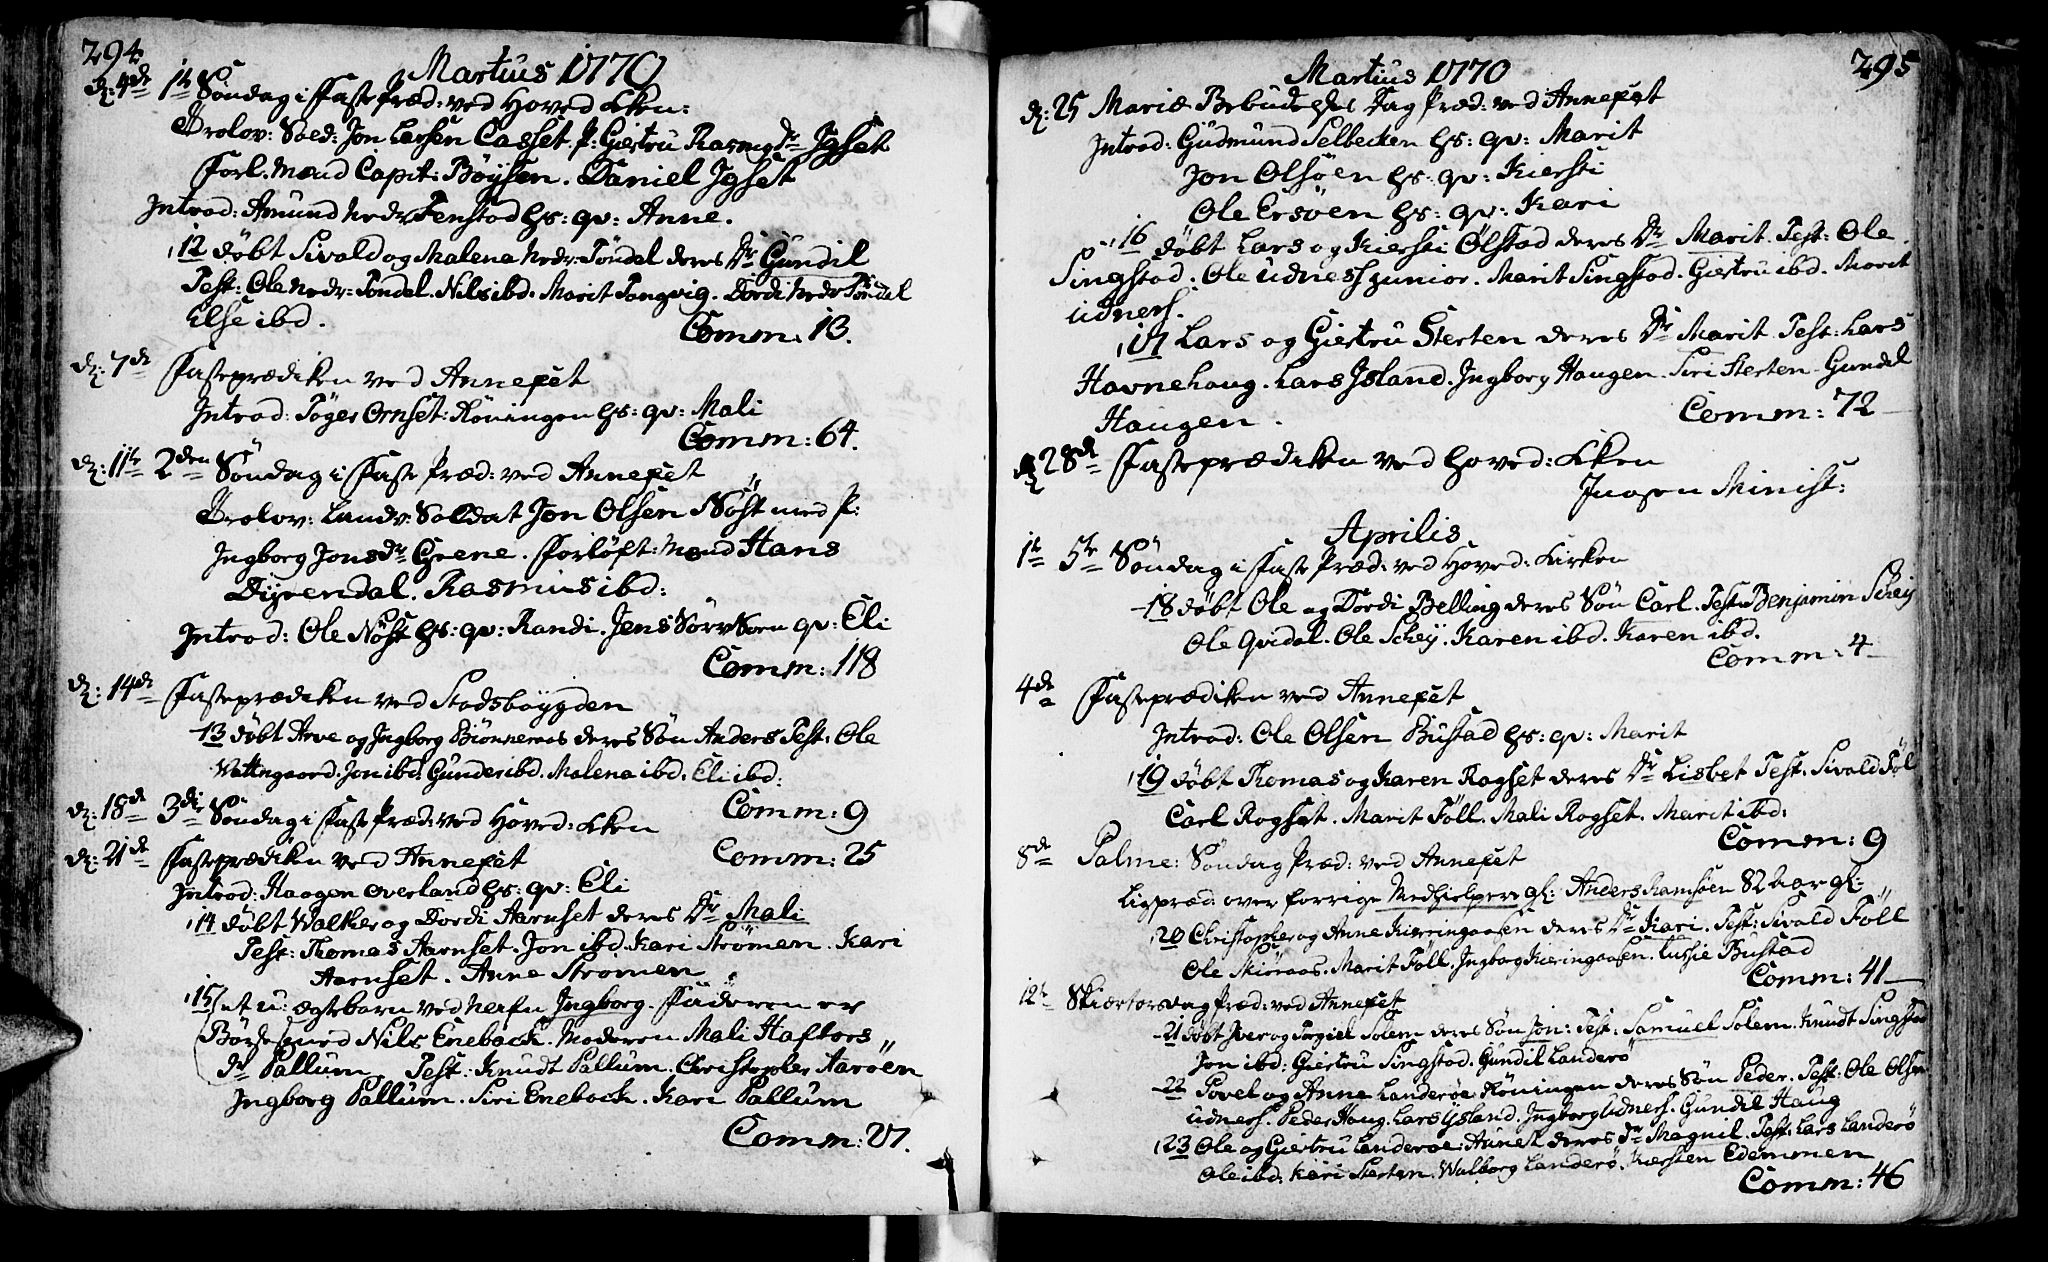 294
Martius 1770
d: 4de 1te Søndag i Faste Præd: ved Hoved Kken:
Trolov: Sold: Jon Larsen Casset P: Giertru Rasmusdr Igset
Forl. Mænd Capit: Böysen. Daniel Igset
Introd: Amund nedr Fenstad hs: qv: Anne.
12 döbt Sivald og Malena nedr: Töndel deres Dr Gundil
Test: Ole nedr: Töndel. Nils ibd. Marit Tangvig. Dordi nedr Töndel
Else ibd.
Comm: 13.
d: 7de Fasteprædiken ved Annexet
Introd: Töger Ornset: Röningen hs: qv: Mali
Comm: 64.
d: 11te 2den Søndag i Faste Præd: ved Annexet
Trolov: Landv: Soldat Jon Olsen Nöst med P:
Ingborg Jonsdr Grene. Forlöft: Mænd Hans
Dyrendal. Rasmus ibd:
Introd: Ole Nöst hs: qv: Randi. Jens Sörv Sorn qv: Eli
Comm: 118
d: 14de Fasteprædiken ved Stadsböygden
13 döbt Arve og Ingborg Biönneraas deres Sön Anders Test: Ole
Vattngaard. Jon ibd. Gunder ibd. Malena ibd. Eli ibd:
Comm: 9
d: 18de 3die Søndag i Faste Præd: ved Hoved: Kken
Comm: 25
d: 21de Fasteprædiken ved Annexet
Introd: Haagen Overland hs: qv: Eli
14 döbt Walther og Dordi Aarnset deres Dr Mali
Test: Thomas Aarnset. Jon ibd. Kari Strömen. Kari
Aarnset. Anne Strömen
15 et u: ægte barn ved nafn Ingborg. Faderen er
Mali Haftors
dr Pallum. Test: Knudt Pallum. Christopher Aaröen
Ingborg Pallum. Siri Eneback. Kari Pallum
Comm: 27.
295
Martius 1770
d: 25 Mariæ Bebudelses Dag Præd: ved Annexet
Introd: Gudmund Selbecken hs: qv: Marit
Jon Olsöen hs: qv: Kiersti
Ole Ersöen hs: qv: Kari
16 döbt Lars og Kiersti Ölstad deres Dr Marit. Test: Ole
Singstad. Ole Udness junior. Marit Singstad. Giertru ibd. Marit
Udness.
17 Lars og Giertru Sterten deres Dr Marit. Test: Lars
Havnehaug. Lars Island. Ingborg Haugen. Siri Sterten. Gundel
Haugen.
Comm: 72
d 28de Fasteprædiken ved Hoved: Kken
Ingen Minist:
Aprilis
1te 5te Søndag i Faste Præd: ved Hoved: Kirken
18 döbt Ole og Dordi Belling deres Sön Carl. Test: Benjamin Scheij
Ole Qvidal. Ole Scheij. Karen ibd. Karen ibd.
Comm: 4
4de Fasteprædiken ved Annexet
Introd: Ole Olsen Bustad hs: qv: Marit
19 döbt Thomas og Karen Rogset deres Dr Lisbet Test. Sivald Föl
Carl Rogset. Marit Föll. Mali Rogset. Marit ibd:
Comm: 9
8de Palme: Søndag Præd: ved Annexet
Ligpræd: over forrige Medhielpere gl: Anders Ramsöen 82 Aar gl:
20 Christopher og Anne Kiringaasen deres Dr Kari. Test: Sivald Föll
Ole Skiöraas. Marit Föll. Ingborg Kieringaasen. Lutsie Bustad
Comm: 41
12te Skiertorsdag Præd: ved Annexet
21 döbt Iver og Torgiel Solem deres Sön Jon: Test: Samuel Solem. Knudt Singstad
Jon ibd: Giertru Singstad. Gundil Landerö
22 Povel og Anne Landeröe Röningen deres Sön Peder. Test: Ole Olsen
Udness. Peder Haug. Lars Ysland. Ingborg Udness. Gundil Haug
23 Ole og Giertru Landeröe: Aunet deres Dr Magnil. Test: Lars Landerö
Ole ibd: Kari Sterten. Walborg Landerö. Kiersten Edemmen
Comm: 46